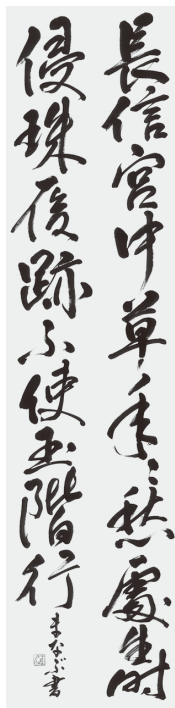 長信宮中草年々愁處生時
侵珠履跡不使玉階行
まなぶ書